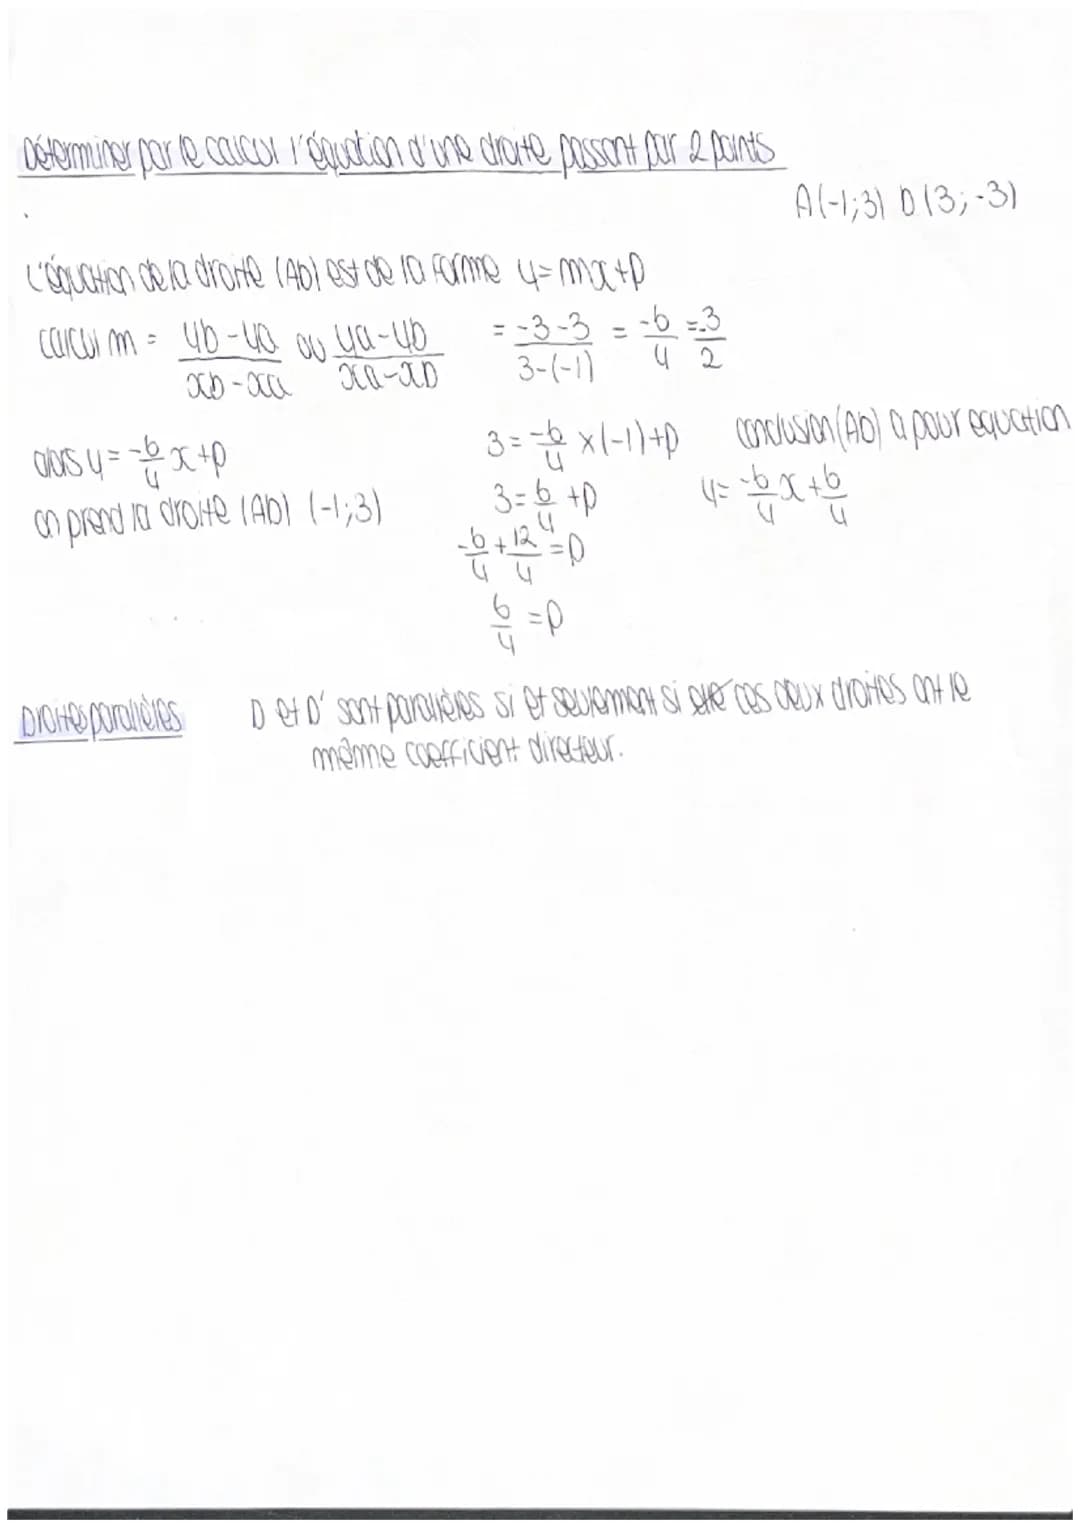 Déterminer par le calcul l'équation d'une droite passant par 2 points
A(-1;3) D(3;-3)
L'équation de la droite (AD) est de la forme y=mx+p
calcul m = yb-ya / xb-xa ou ya-yb / xa-xb = -3-3 / 3-(-1) = -6/4 = -3/2
alors y = -6/4 x+p
on prend la droite (AD) (-1;3)
3 = -6/4 x(-1)+p
3 = 6/4 +p
-6/4 + 12/4 = p
6/4 = p
conclusion (AD) a pour equation
y = -6/4 x + 6/4
Droites parallèles
D et D' sont parallèles si et seulement si ces deux droites ont le
même coefficient directeur.